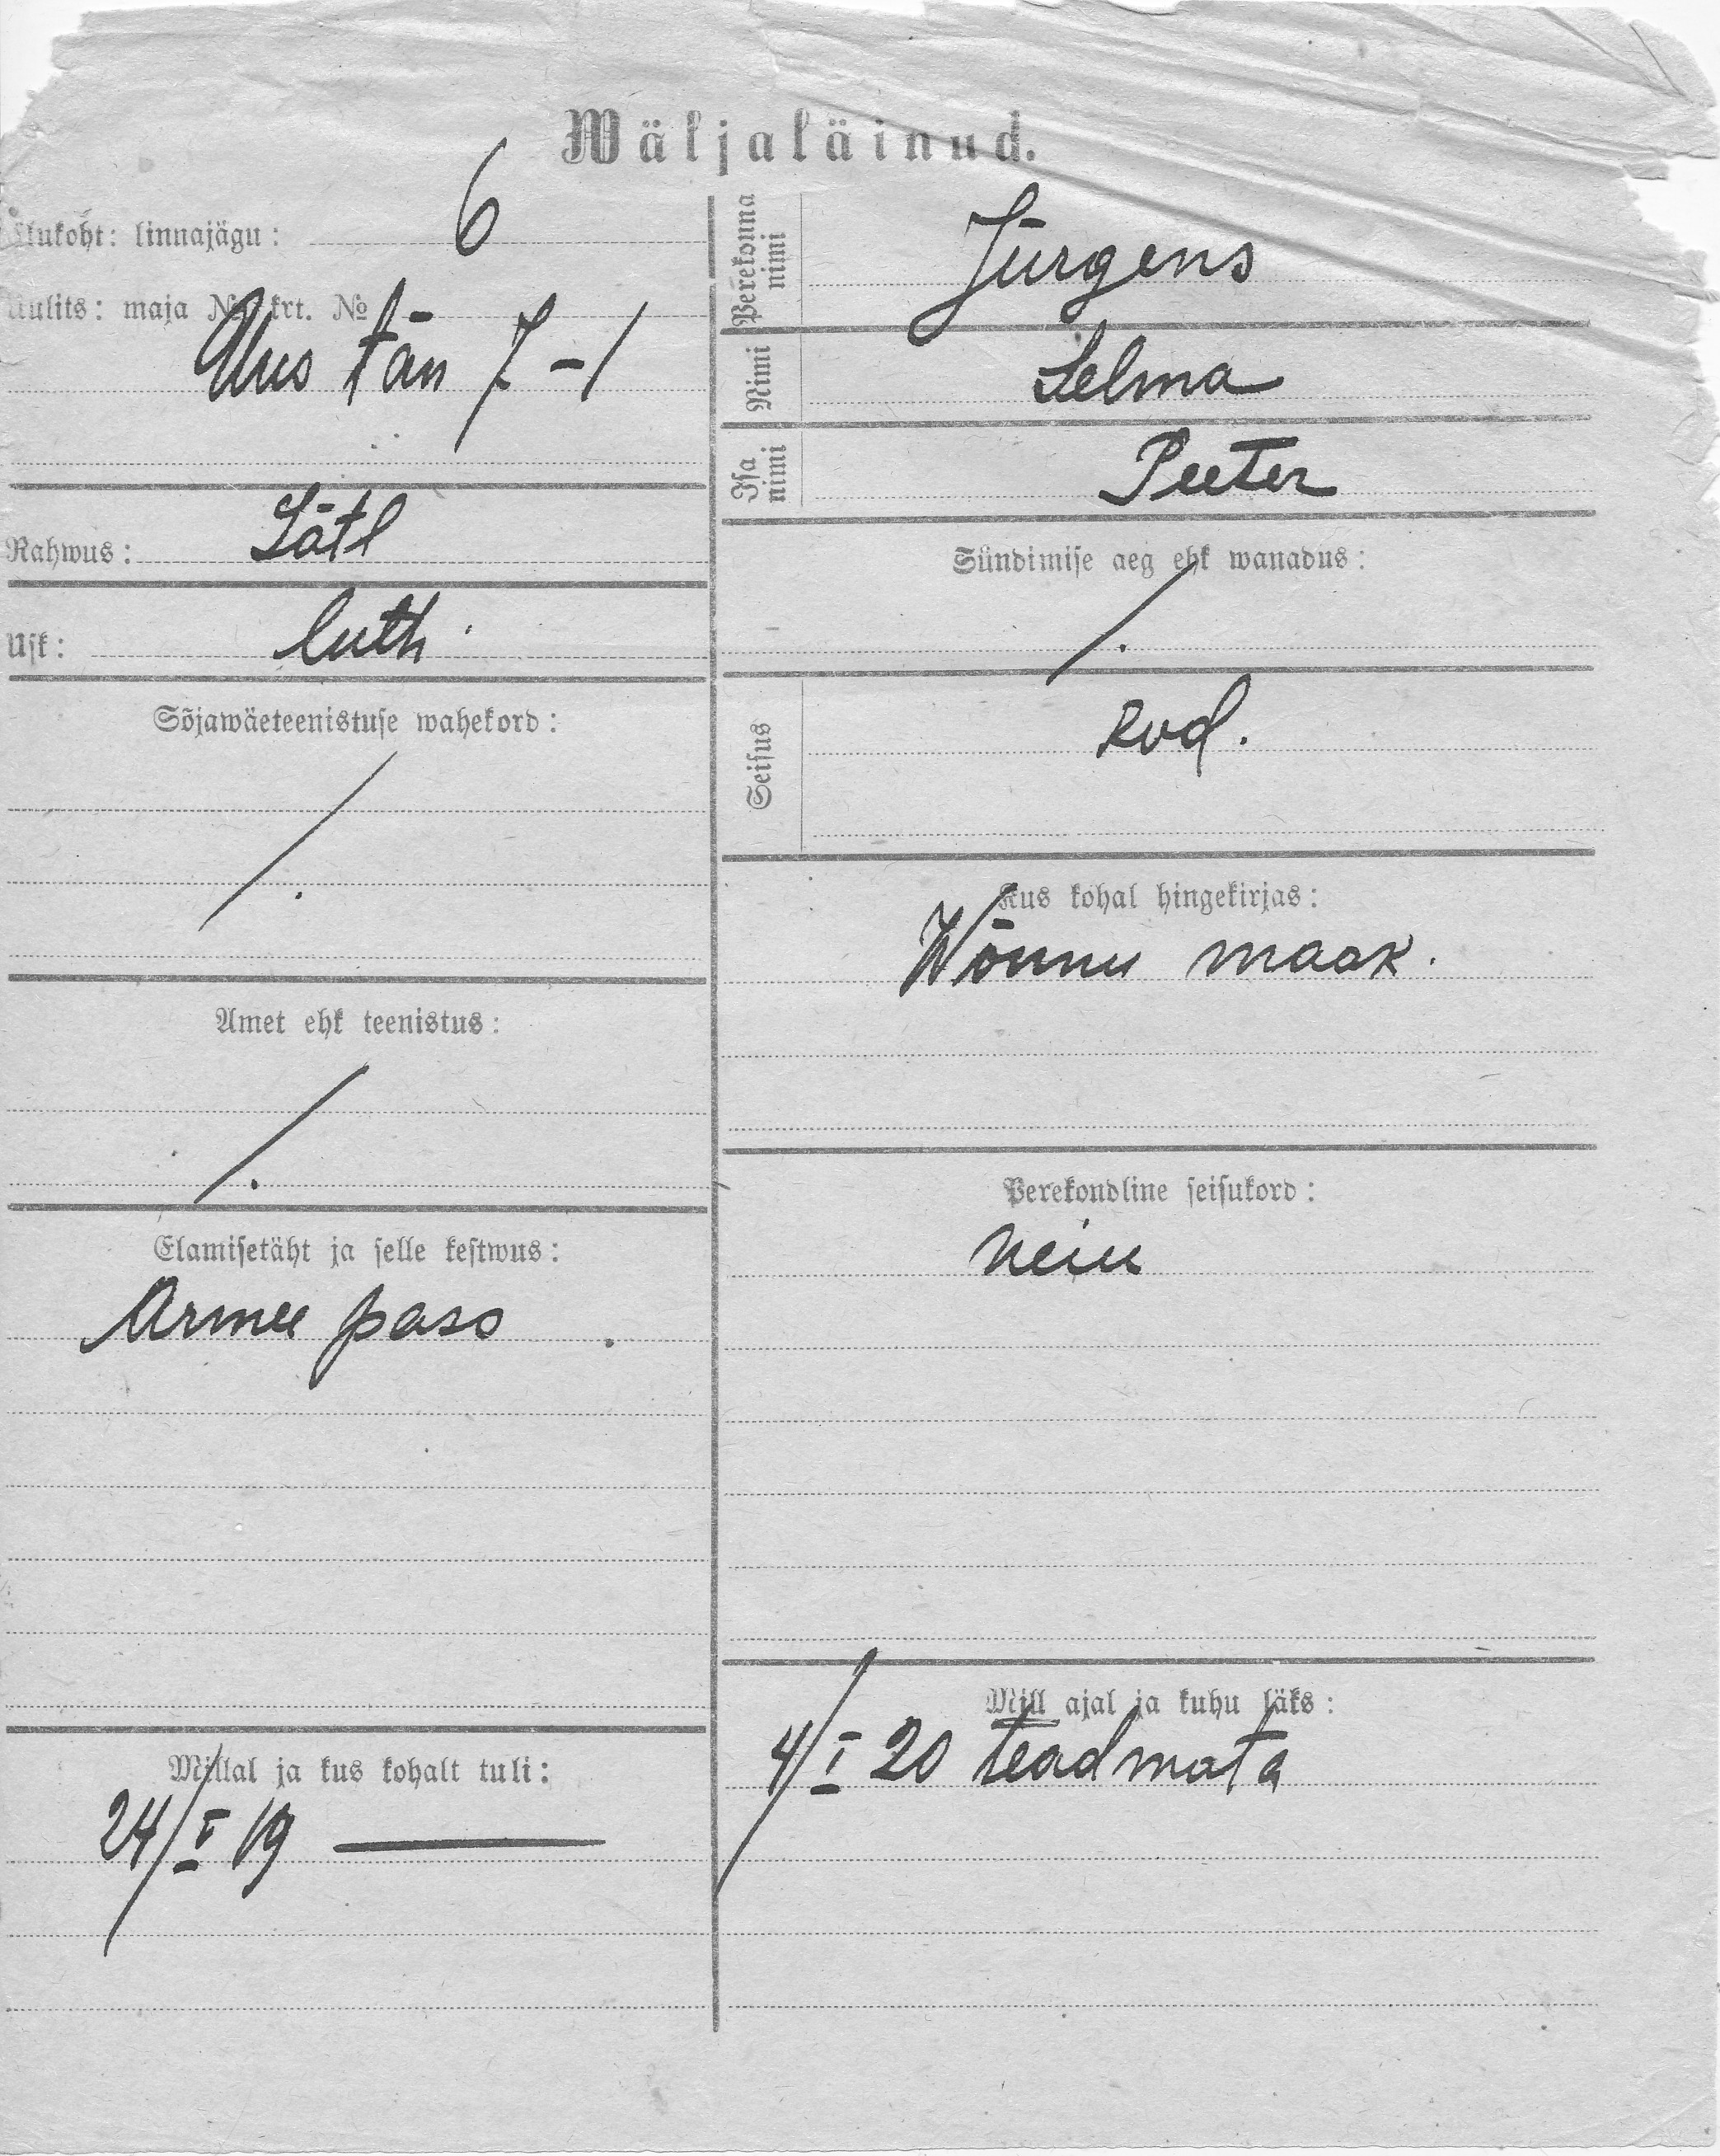 Wäljaläinud.
Elukoht: linnajägu: 6
Uulits: maja № krt. №
Uus tän 7-1
Rahwus: Lätl
Usk: luth.
Sõjawäeteenistuse wahekord:
/.
Amet ehk teenistus:
/.
Elamisetäht ja selle kestwus:
Armee pass.
Millal ja kus kohalt tuli:
24/I 19 —
Perekonna nimi Jürgens
Nimi Selma
Isa nimi Peeter
Sündimise aeg ehk wanadus:
/.
Seisus kod.
Kus kohal hingekirjas:
Wõnnu maak.
Perekondline seisukord:
neiu
Mill ajal ja kuhu läks:
4/I 20 teadmata